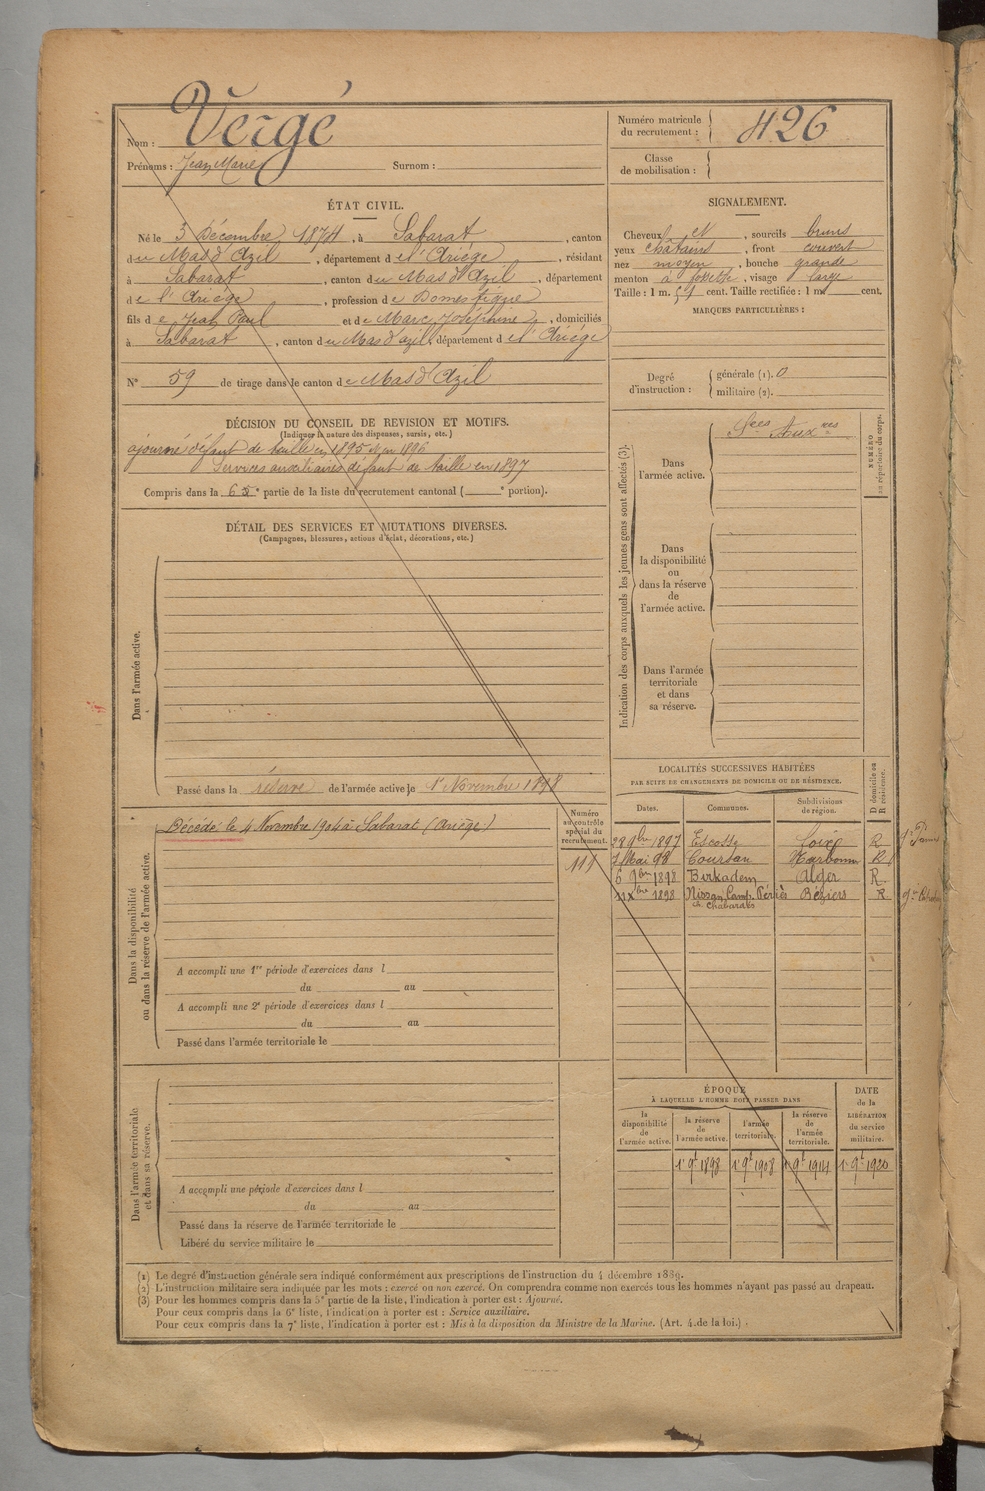 Nom : Vergé
Prénoms : Jean Marie Surnom :
Numéro matricule du recrutement : 426
Classe de mobilisation :
ÉTAT CIVIL.
Né le 3 Décembre 1874, à Sabarat, canton
du Mas d'Azil, département de l'Ariège, résidant
à Sabarat, canton du Mas d'Azil, département
de l'Ariège, profession de Domestique
fils de Jean Paul et de Marc Joséphine, domiciliés
à Sabarat, canton du Mas d'azil, département de l'Ariége
N° 59 de tirage dans le canton de Mas d'Azil
SIGNALEMENT.
Cheveux et, sourcils bruns
yeux châtains, front couvert
nez moyen, bouche grande
menton à fossette, visage large
Taille : 1 m. 54 cent. Taille rectifiée : 1 m cent.
MARQUES PARTICULIÈRES :
Degré d'instruction : générale (1). 0
militaire (2).
DÉCISION DU CONSEIL DE REVISION ET MOTIFS.
(Indiquer la nature des dispenses, sursis, etc.)
ajourné défaut de taille en 1895 et en 1896
Services auxiliaires défaut de taille en 1897
Compris dans la 6e partie de la liste du recrutement cantonal ( e portion).
DÉTAIL DES SERVICES ET MUTATIONS DIVERSES.
(Campagnes, blessures, actions d'éclat, décorations, etc.)
Dans l'armée active.
Passé dans la réserve de l'armée active le 1er Novembre 1898
Indication des corps auxquels les jeunes gens sont affectés (3).
Dans l'armée active.
Sces Auxres
NUMÉRO au répertoire du corps.
Dans la disponibilité ou dans la réserve de l'armée active.
Dans l'armée territoriale et dans sa réserve.
Dans la disponibilité ou dans la réserve de l'armée active.
Décédé le 4 Novembre 1904 à Sabarat (Ariège)
Numéro au contrôle spécial du recrutement.
111
A accompli une 1re période d'exercices dans l
du au
A accompli une 2e période d'exercices dans l
du au
Passé dans l'armée territoriale le
LOCALITÉS SUCCESSIVES HABITÉES
PAR SUITE DE CHANGEMENTS DE DOMICILE OU DE RÉSIDENCE.
Dates. Communes. Subdivisions de région. D domicile ou R résidence.
28 9bre 1897 Escosse Foix R
7 Mai 98 Coursan Narbonne R
6 9bre 1898 Birkadem Alger R
11 Xbre 1898 Nissan Camp. Périès Béziers R
ch. Chabardès
Dans l'armée territoriale et dans sa réserve.
A accompli une période d'exercices dans l
du au
Passé dans la réserve de l'armée territoriale le
Libéré du service militaire le
ÉPOQUE
À LAQUELLE L'HOMME DOIT PASSER DANS
la disponibilité de l'armée active.
la réserve de l'armée active.
l'armée territoriale.
la réserve de l'armée territoriale.
DATE de la LIBÉRATION du service militaire.
1er 9bre 1898 1er 9bre 1908 1er 9bre 1914 1er 9bre 1920
(1) Le degré d'instruction générale sera indiqué conformément aux prescriptions de l'instruction du 4 décembre 1889.
(2) L'instruction militaire sera indiquée par les mots : exercé ou non exercé. On comprendra comme non exercés tous les hommes n'ayant pas passé au drapeau.
(3) Pour les hommes compris dans la 5e partie de la liste, l'indication à porter est : Ajourné.
Pour ceux compris dans la 6e liste, l'indication à porter est : Service auxiliaire.
Pour ceux compris dans la 7e liste, l'indication à porter est : Mis à la disposition du Ministre de la Marine. (Art. 4 de la loi.)